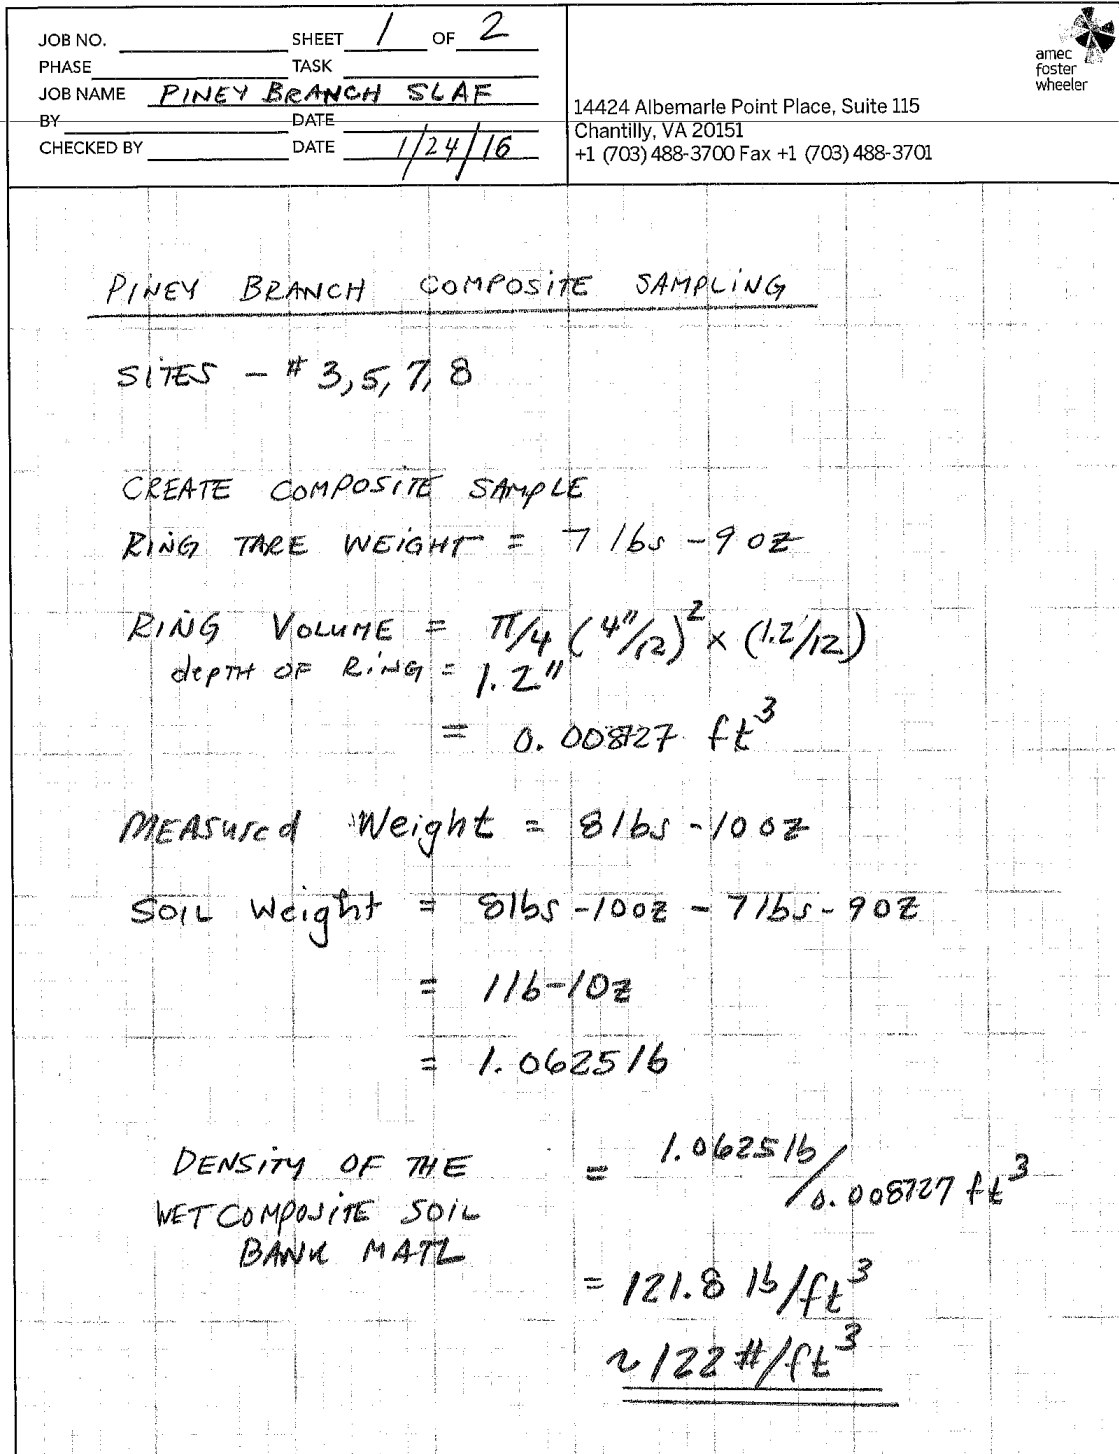 JOB NO. SHEET 1 OF 2
PHASE TASK
JOB NAME PINEY BRANCH SLAF
BY DATE
CHECKED BY DATE 1/24/16
amec
foster
wheeler
14424 Albemarle Point Place, Suite 115
Chantilly, VA 20151
+1 (703) 488-3700 Fax +1 (703) 488-3701
PINEY BRANCH COMPOSITE SAMPLING
SITES - # 3, 5, 7, 8
CREATE COMPOSITE SAMPLE
RING TARE WEIGHT = 7 lbs - 9 oz
RING VOLUME = π/4 (4"/12)² × (1.2/12)
depTH OF RING = 1.2"
= 0.008727 ft³
MEASURed Weight = 8 lbs - 10 oz
SOIL Weight = 8 lbs - 10 oz - 7 lbs - 9 oz
= 1 lb - 1 oz
= 1.0625 lb
DENSITY OF THE = 1.0625 lb/0.008727 ft³
WET COMPOSITE SOIL
BANK MATL
= 121.8 lb/ft³
~ 122 #/ft³